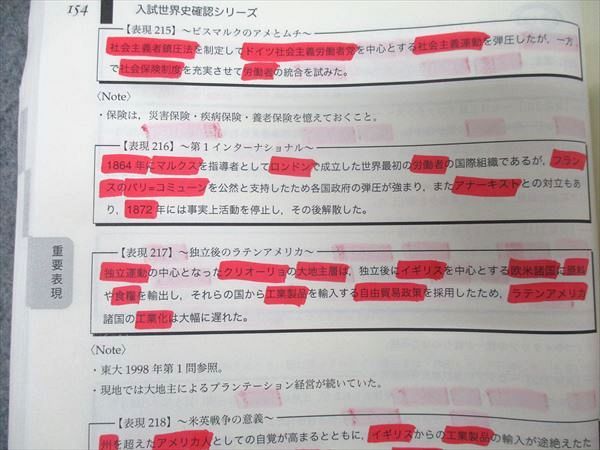 154 入試世界史確認シリーズ
【表現 215】〜ビスマルクのアメとムチ〜
社会主義者鎮圧法を制定してドイツ社会主義労働者党を中心とする社会主義運動を弾圧したが、一方
で社会保険制度を充実させて労働者の統合を試みた。
〈Note〉
・保険は，災害保険・疾病保険・養老保険を憶えておくこと。
【表現 216】〜第 1 インターナショナル〜
1864 年にマルクスを指導者としてロンドンで成立した世界最初の労働者の国際組織であるが，フラン
スのパリ=コミューンを公然と支持したため各国政府の弾圧が強まり，またアナーキストとの対立もあ
り，1872 年には事実上活動を停止し，その後解散した。
重要表現
【表現 217】〜独立後のラテンアメリカ〜
独立運動の中心となったクリオーリョの大地主層は，独立後にイギリスを中心とする欧米諸国に原料
や食糧を輸出し，それらの国から工業製品を輸入する自由貿易政策を採用したため，ラテンアメリカ
諸国の工業化は大幅に遅れた。
〈Note〉
・東大 1998 年第 1 問参照。
・現地では大地主によるプランテーション経営が続いていた。
【表現 218】〜米英戦争の意義〜
州を超えたアメリカ人としての自覚が高まるとともに，イギリスからの工業製品の輸入が途絶えたた